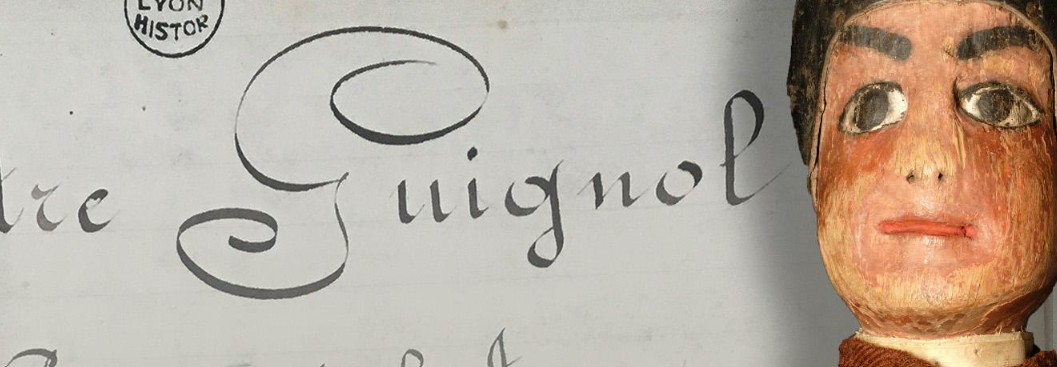 LYON
HISTOR
tre Guignol